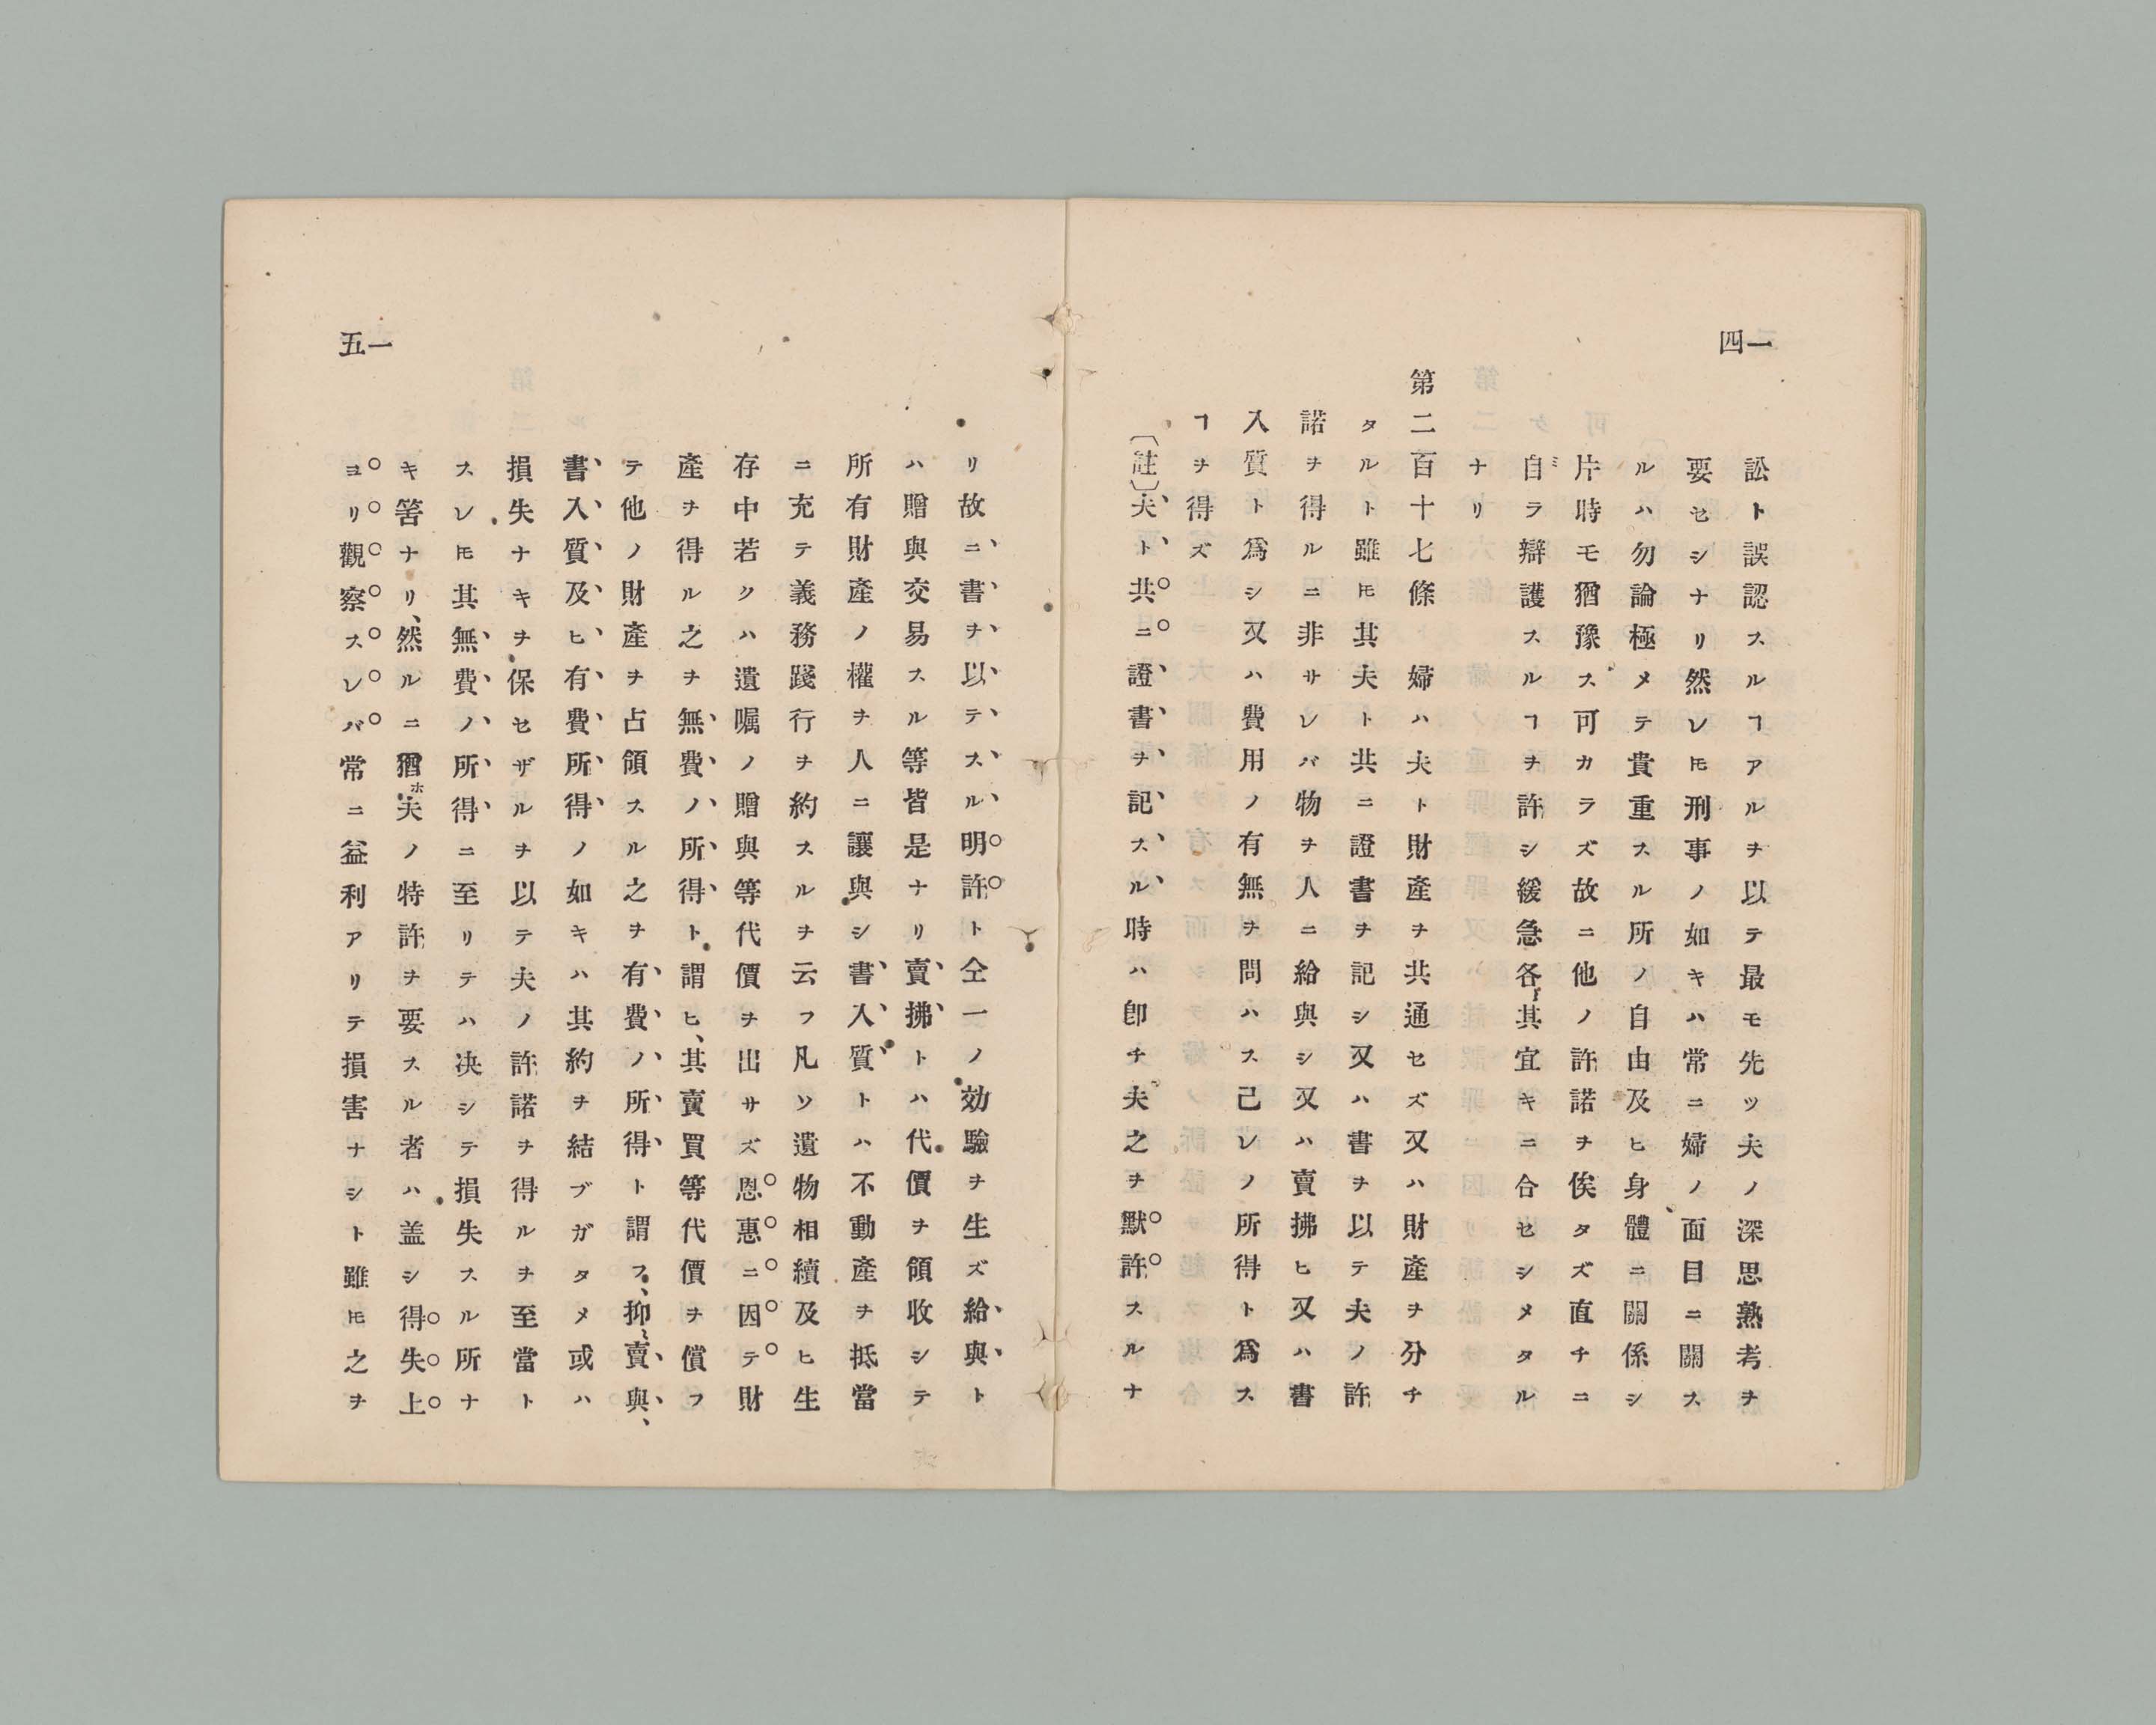 一四
訟ト誤認スルヿアルヲ以テ最モ先ツ夫ノ深思熟考ヲ
要セシナリ然レ𪜈刑事ノ如キハ常ニ婦ノ面目ニ關ス
ルハ勿論極メテ貴重スル所ノ自由及ヒ身體ニ關係シ
片時モ猶豫ス可カラズ故ニ他ノ許諾ヲ俟タズ直チニ
自ミラ辯護スルヿヲ許シ緩急各〻其宜キニ合セシメタル
ナリ
第二百十七條 婦ハ夫ト財產ヲ共通セズ又ハ財產ヲ分チ
タルト雖𪜈其夫ト共ニ證書ヲ記シ又ハ書ヲ以テ夫ノ許
諾ヲ得ルニ非サレバ物ヲ人ニ給與シ又ハ賣拂ヒ又ハ書
入質ト爲シ又ハ費用ノ有無ヲ問ハス己レノ所得ト爲ス
ヿヲ得ズ
〔註〕夫ト共ニ證書ヲ記スル時ハ卽チ夫之ヲ默許スルナ
一五
リ故ニ書ヲ以テスル明許ト仝一ノ効驗ヲ生ズ給與ト
ハ贈與交易スル等皆是ナリ賣拂トハ代價ヲ領收シテ
所有財產ノ權ヲ人ニ讓與シ書入質トハ不動產ヲ抵當
ニ充テ義務踐行ヲ約スルヲ云フ凡ソ遺物相續及ヒ生
存中若クハ遺囑ノ贈與等代價ヲ出サズ恩惠ニ因テ財
產ヲ得ル之ヲ無費ノ所得ト謂ヒ、其賣買等代價ヲ償フ
テ他ノ財產ヲ占領スル之ヲ有費ノ所得ト謂フ、抑〻賣與、
書入質及ヒ有費所得ノ如キハ其約ヲ結ブガタメ或ハ
損失ナキヲ保セザルヲ以テ夫ノ許諾ヲ得ルヲ至當ト
スレ𪜈其無費ノ所得ニ至リテハ决シテ損失スル所ナ
キ筈ナリ、然ルニ猶ホ夫ノ特許ヲ要スル者ハ盖シ得失上
ヨリ觀察スレバ常ニ益利アリテ損害ナシト雖𪜈之ヲ